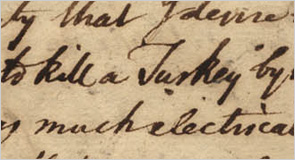 ty that I desire
to kill a Turkey by
much electrical